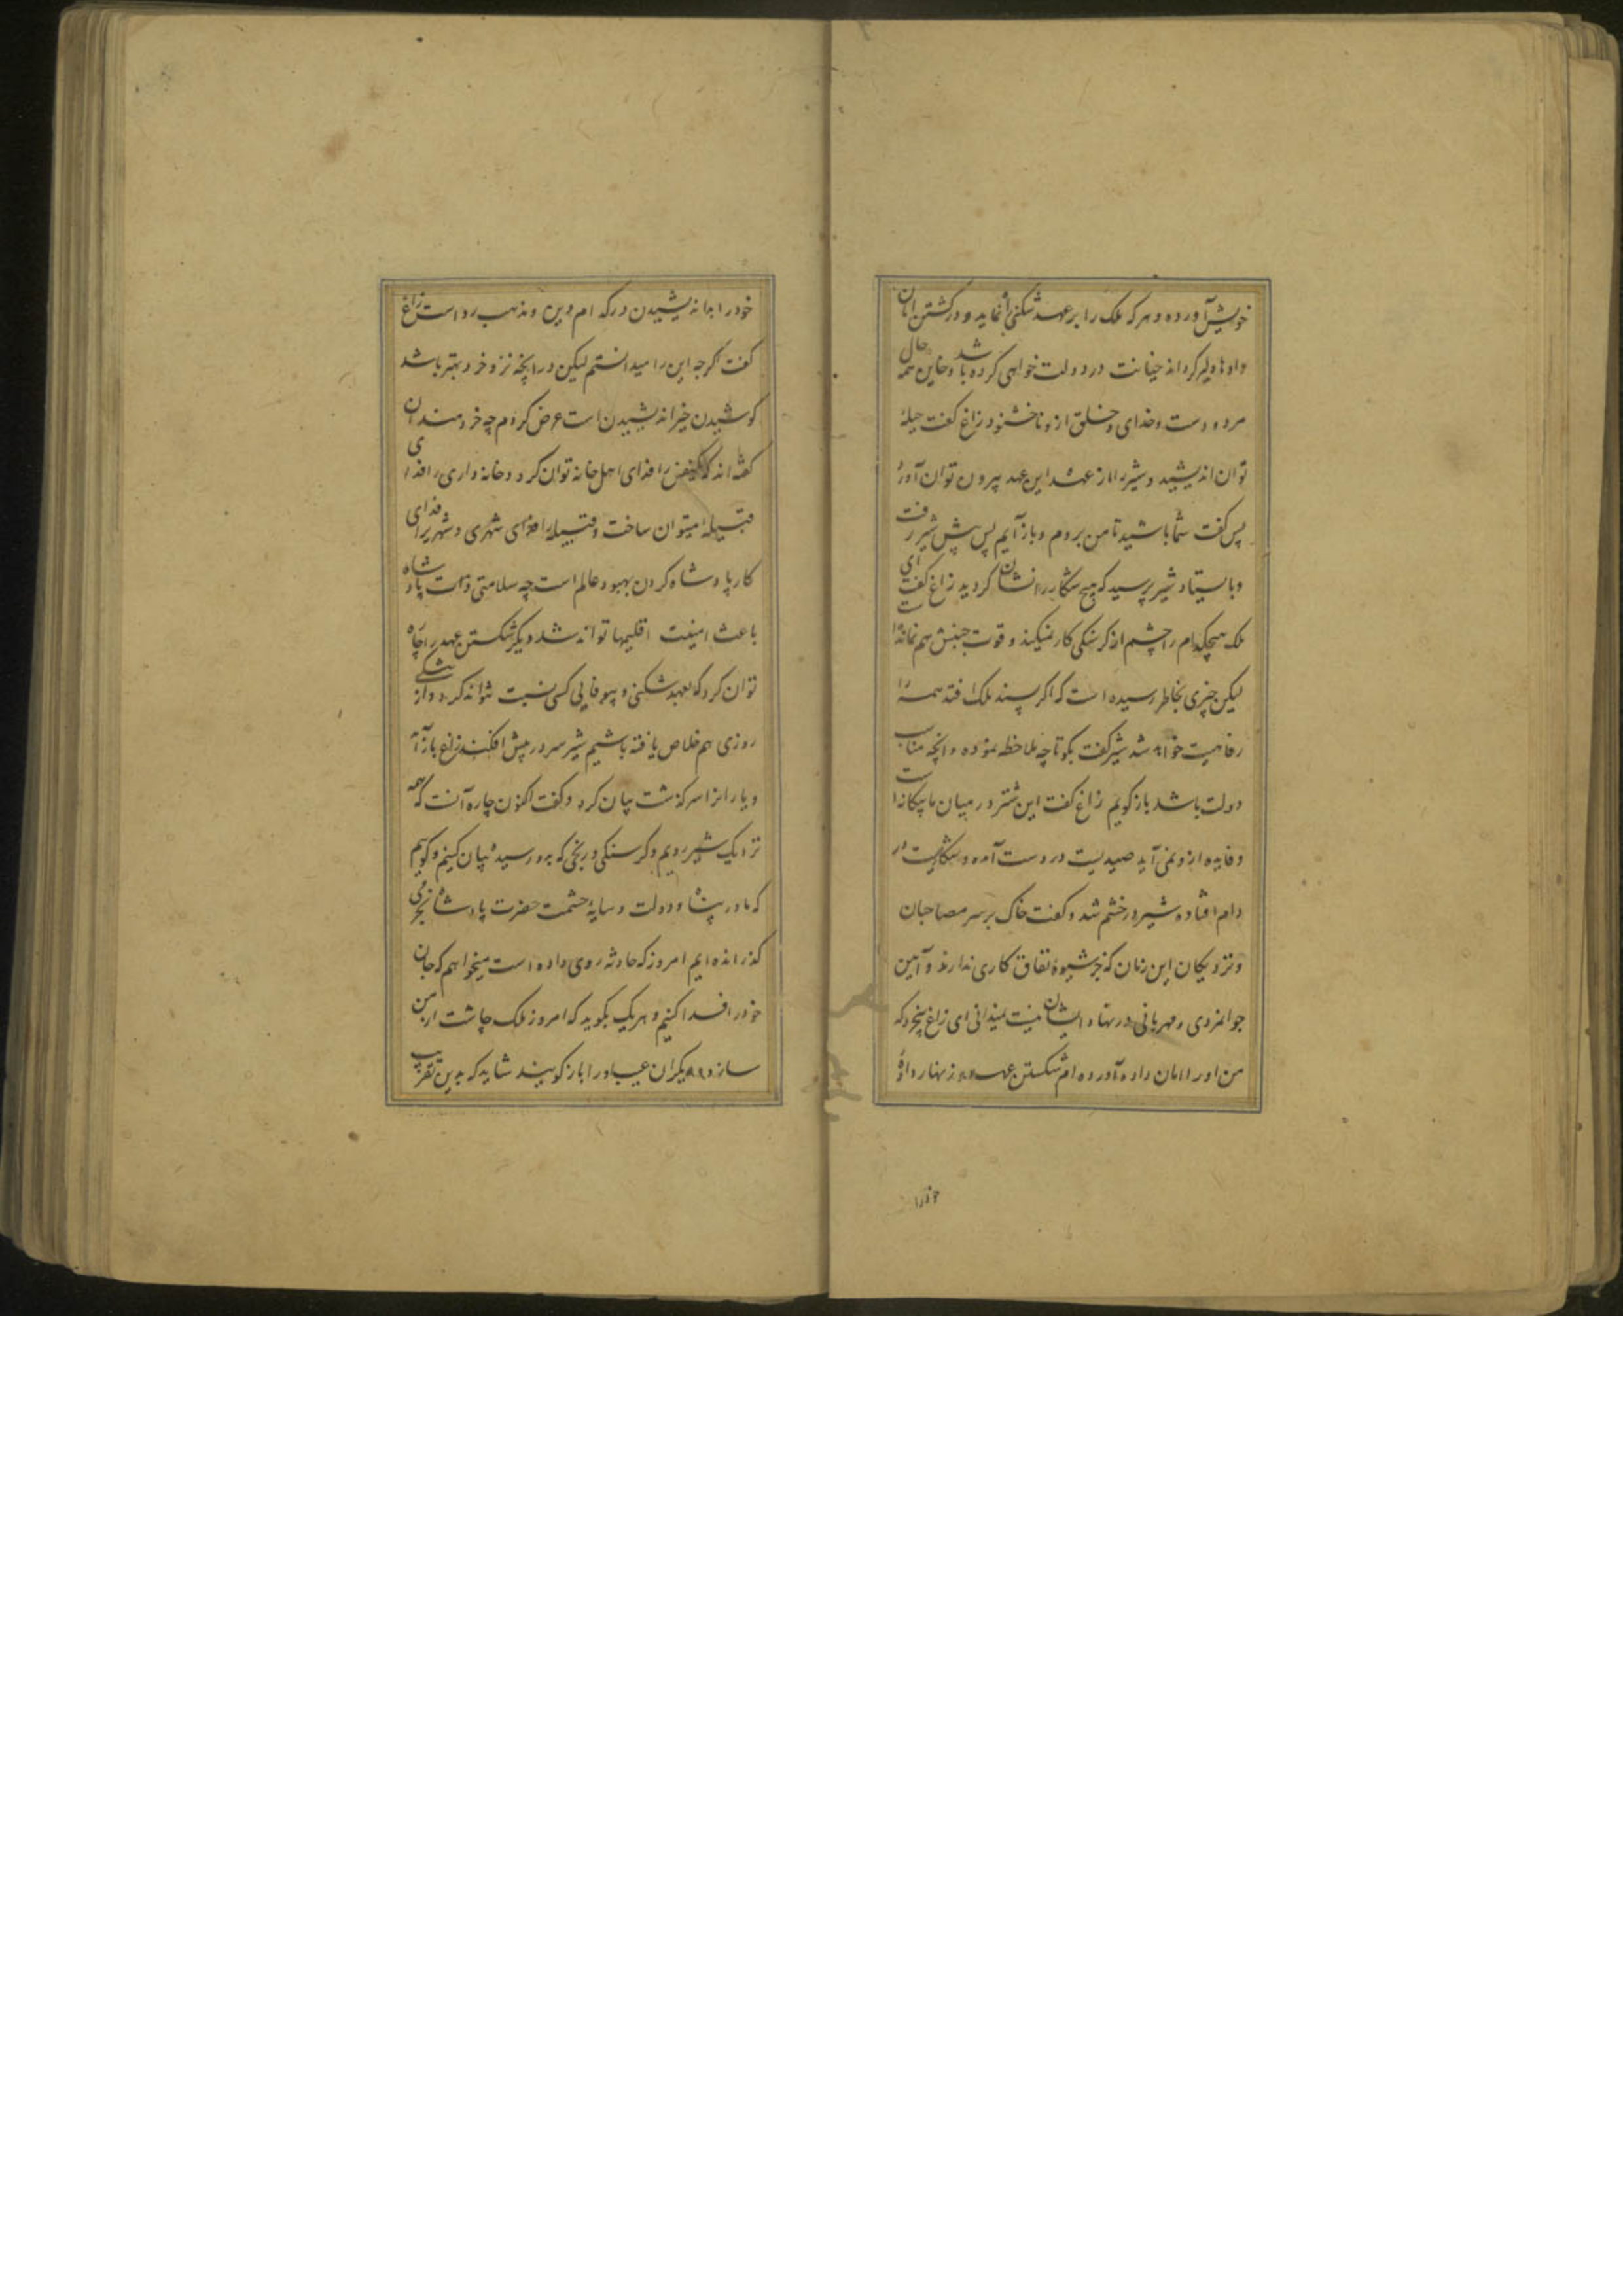 خویش آورده و هر که ملک را بر عهد شکنی نماید و در کشتن امان
داده دلیر کرداند خیانت در دولت خواهی کرده باشد و خاین همه حال
مردودست و خدای و خلق ازو ناخشنود زاغ کفت حیلهٔ
توان اندیشید و شیر را از عهدهٔ این عهد بیرون توان آورد
پس کفت شما باشید تا من بروم و باز آیم پس پیش شیر رفت
و بایستاد شیر پرسید که هیچ شکاری را نشان کردید زاغ کفت ای
ملک هیچکدام را چشم از کرسنکی کار نمیکند و قوت جنبش هم نمانده است
لیکن چیزی بخاطر رسیده است که اکر پسند ملک افتد همه را
رفاهیت خواهد شد شیر کفت بکو تا چه ملاحظه نموده و انچه مناسب
دولت باشد باز کویم زاغ کفت این شتر در میان ما بیکانه است
و فایده ازو نمی آید صیدیست در دست آمده و شکاریست در
دام افتاده شیر در خشم شد و کفت خاک بر سر مصاحبان
و نزدیکان این زمان که جز شیوهٔ نفاق کاری ندارند و آیین
جوانمردی و مهربانی در نهاد ایشان نیست نمیدانی ای زاغ بیخرد که
من او را امان داده آورده ام شکستن عهد و زنهار داده
خود را
خود را بد اندیشیدن در کدام دین و مذهب رواست زاغ
کفت اکرچه این را میدانستم لیکن در انچه نزد خرد بهتر باشد
کوشیدن خیر اندیشیدن است عرض کردم چه خردمندان
کفته اند که یک نفس را فدای اهل خانه توان کرد و خانه واری را فدای
قبیلهٔ میتوان ساخت و قبیله را فدای شهری و شهری را فدای
کار پادشاه کردن بهبود عالم است چه سلامتی ذات پادشاه
باعث امنیت اقلیمها تواند شد دیکر شکستن عهد را چاره
توان کرد که بعهد شکنی و بیوفایی کسی نسبت نتواند کرد و از
روزی هم خلاص یافته باشیم شیر سر در پیش افکند زاغ باز آمد
و یارانرا سرکذشت بیان کرد و کفت اکنون چاره آنست که همه
نزدیک شیر رویم و کرسنکی و رنجی که بدو رسیده بیان کنیم و کوییم
که ما در پناه دولت و سایهٔ حشمت حضرت پادشاه بخرمی
کذرانده ایم امروز که حادثه روی داده است میخواهیم که جان
خود را فدا کنیم و هر یک بکوید که امروز ملک چاشت از من
سازد و دیکران عیب او را باز کویند شاید که بدین تقریب